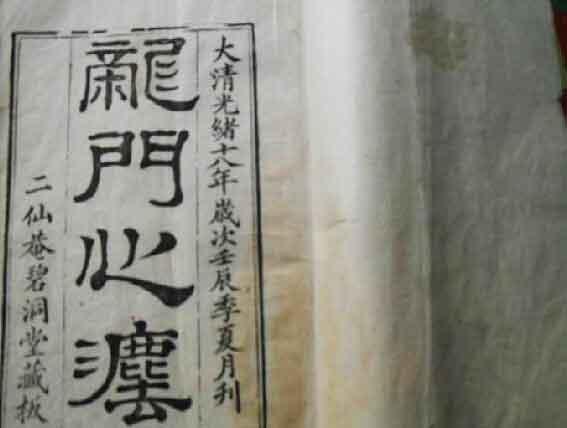 大清光緒十八年歲次壬辰季夏月刋
龍門心灋
二仙菴碧洞堂藏板